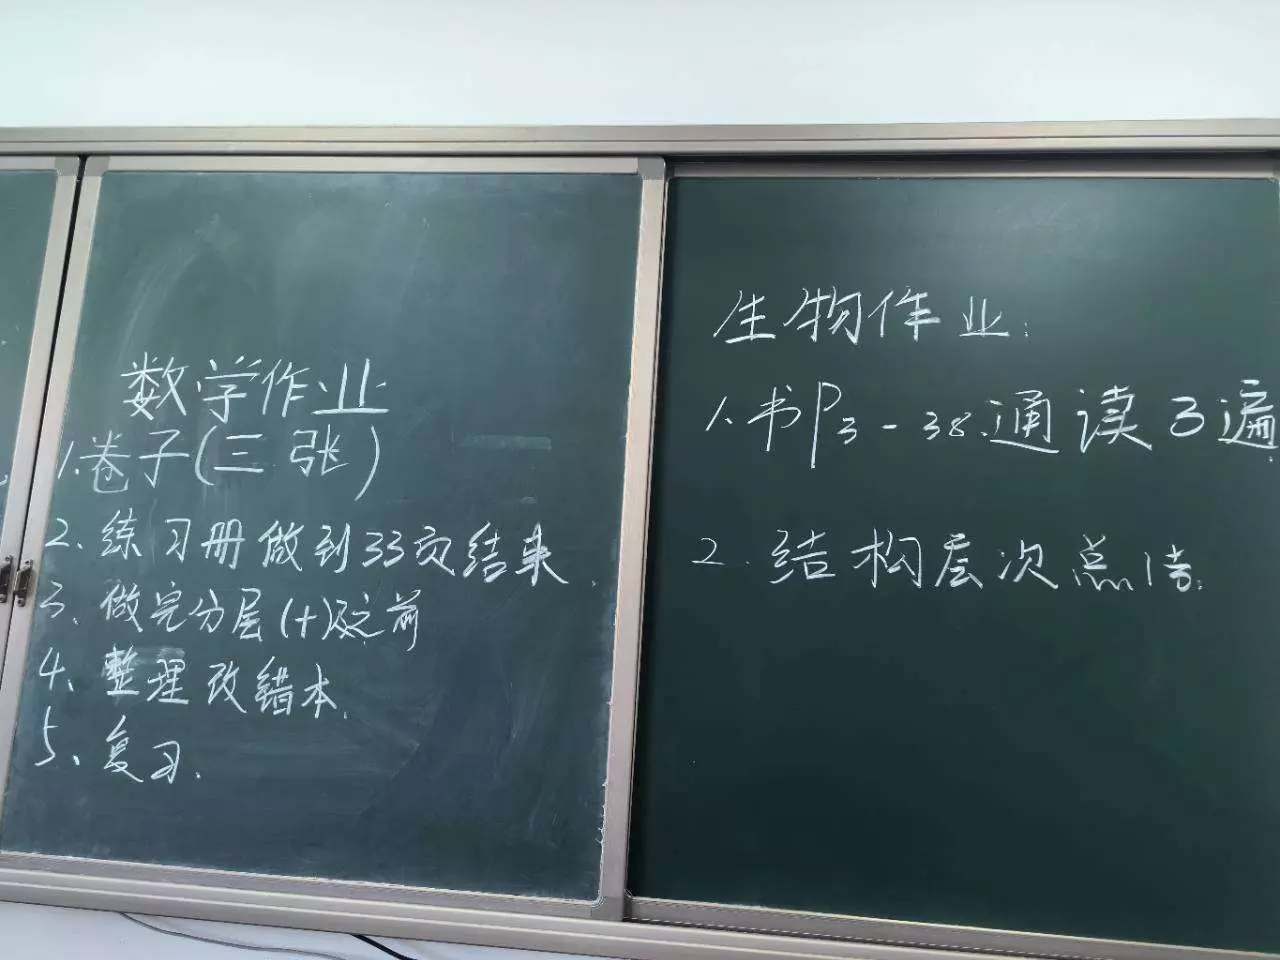 数学作业
1.卷子(三张)
2、练习册做到33页结束.
3、做完分层(十)及之前
4、整理改错本.
5、复习.
生物作业:
1.书P3-38.通读3遍.
2.结构层次点清.